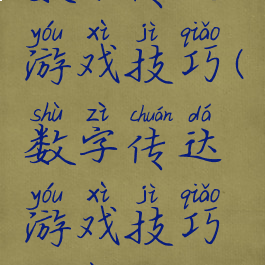 yóu xì jì qiǎo
游戏技巧(
shù zì chuán dá
数字传达
yóu xì jì qiǎo
游戏技巧